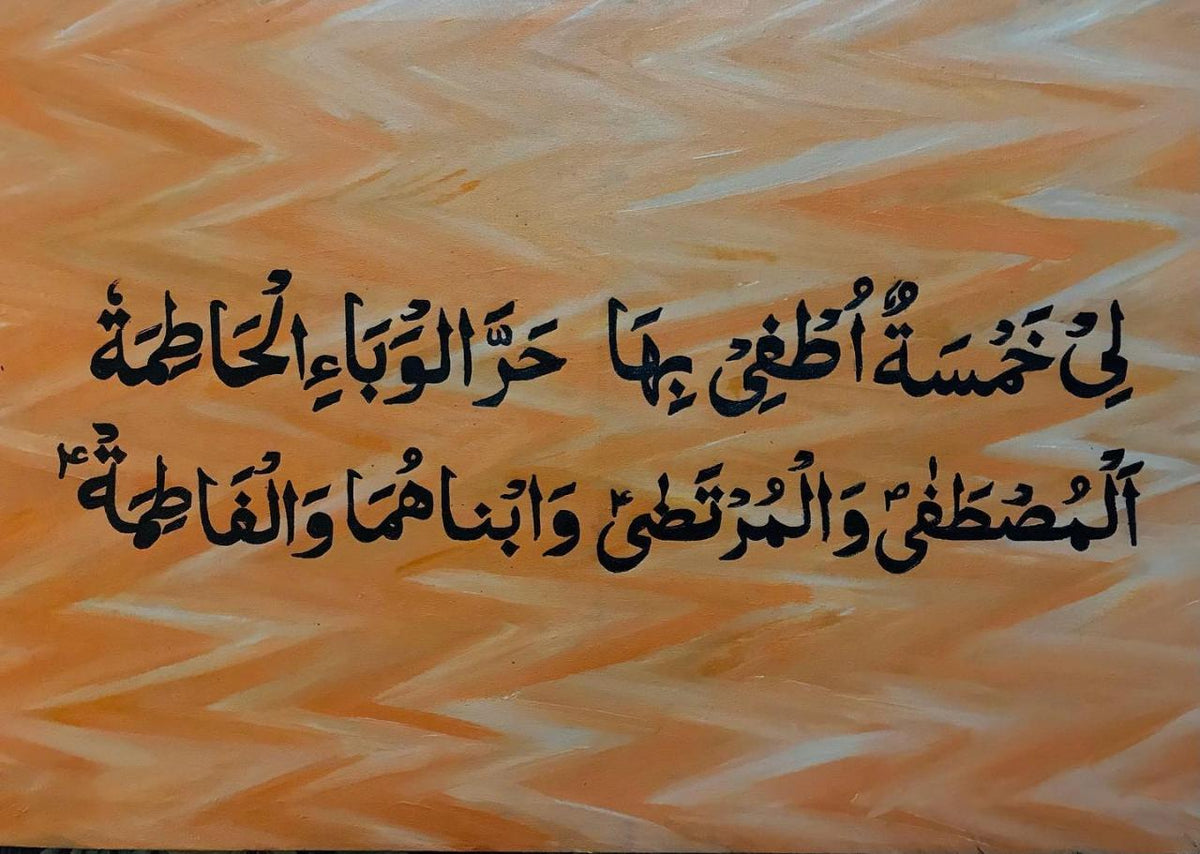 لِيْ خَمْسَةٌ اُطْفِيْ بِهَا حَرَّ الْوَبَاءِ الْحَاطِمَةْ
اَلْمُصْطَفٰیؐ وَالْمُرْتَضیٰؑ وَابْناهُمَا وَالْفَاطِمَةْؑ